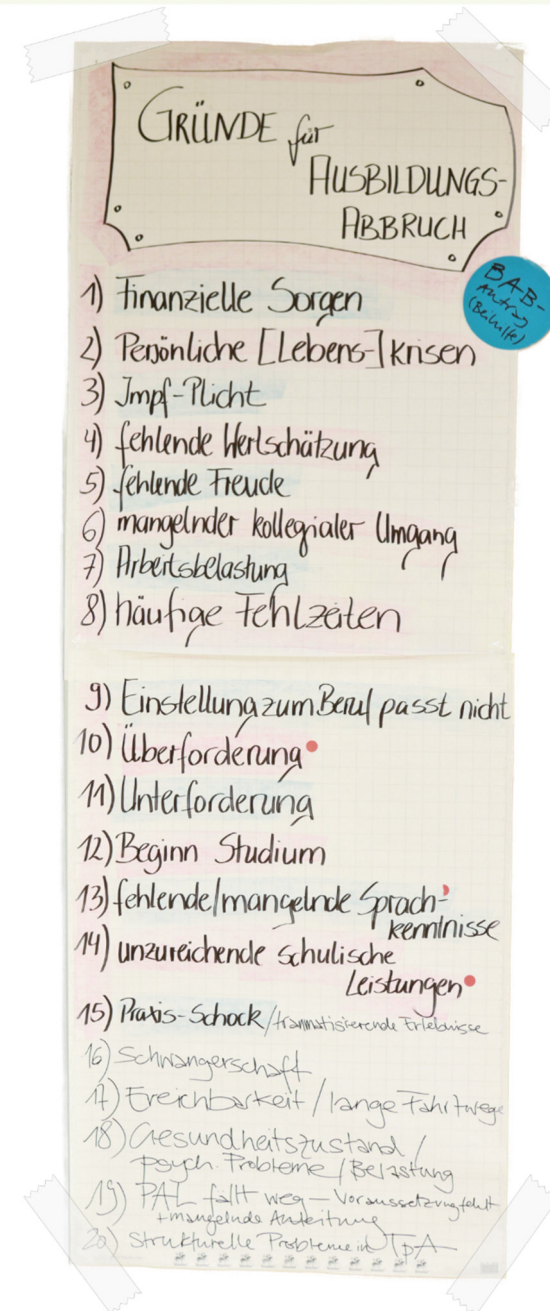 GRÜNDE für
AUSBILDUNGS-
ABBRUCH
BAB-
Antrag
(Beihilfe)
1) Finanzielle Sorgen
2) Persönliche [Lebens-]krisen
3) Impf-Plicht
4) fehlende Wertschätzung
5) fehlende Freude
6) mangelnder kollegialer Umgang
7) Arbeitsbelastung
8) häufige Fehlzeiten
9) Einstellung zum Beruf passt nicht
10) Überforderung
11) Unterforderung
12) Beginn Studium
13) fehlende/mangelnde Sprach-
kenntnisse
14) unzureichende schulische
Leistungen
15) Praxis-Schock/traumatisierende Erlebnisse
16) Schwangerschaft
17) Erreichbarkeit / lange Fahrtwege
18) Gesundheitszustand /
psych. Probleme / Belastung
19) PAL fällt weg – Voraussetzung fehlt
+ mangelnde Anleitung
20) Strukturelle Probleme in TpA